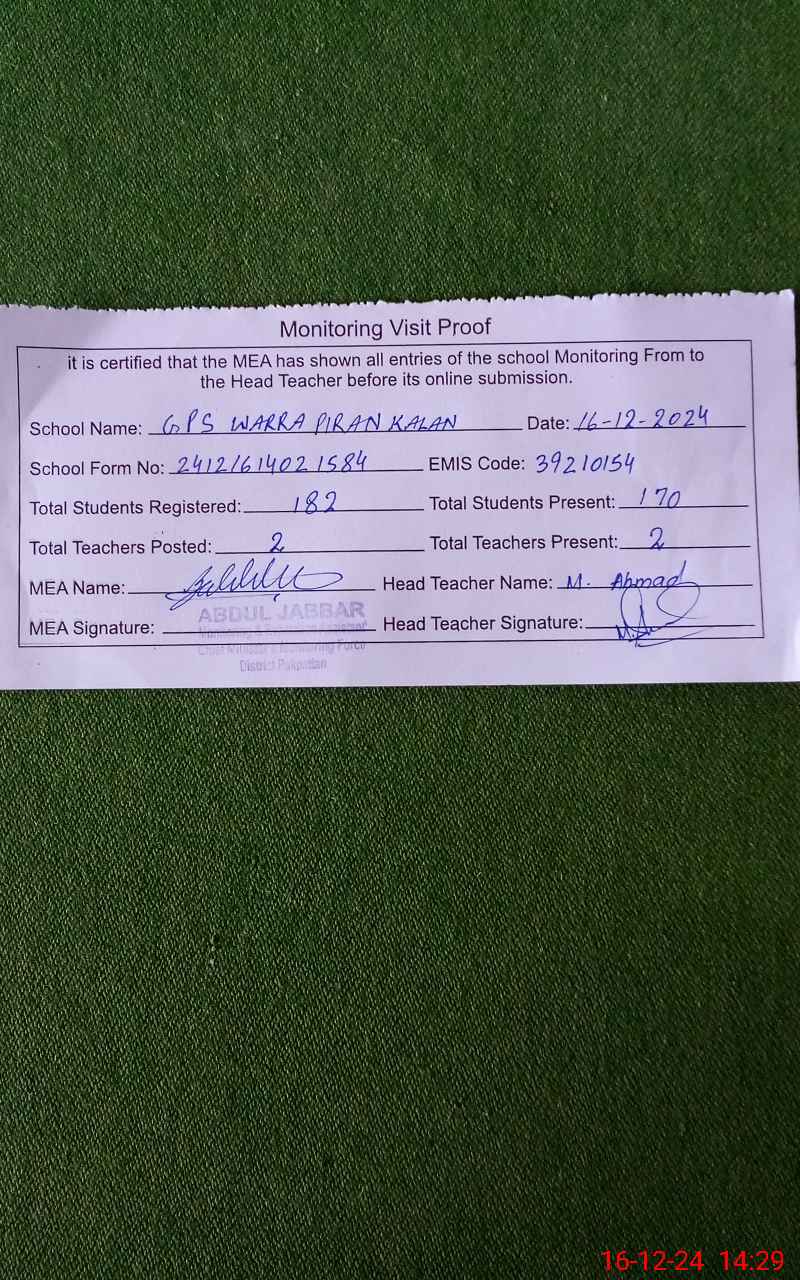 Monitoring Visit Proof
it is certified that the MEA has shown all entries of the school Monitoring From to
the Head Teacher before its online submission.
School Name: GPS WARRA PIRAN KALAN Date: 16-12-2024
School Form No: 2412161402 1584 EMIS Code: 39210154
Total Students Registered: 182 Total Students Present: 170
Total Teachers Posted: 2 Total Teachers Present: 2
MEA Name: Head Teacher Name: M. Ahmad
ABDUL JABBAR
MEA Signature: Head Teacher Signature:
Monitoring Force
District Pakpattan
16-12-24 14:29